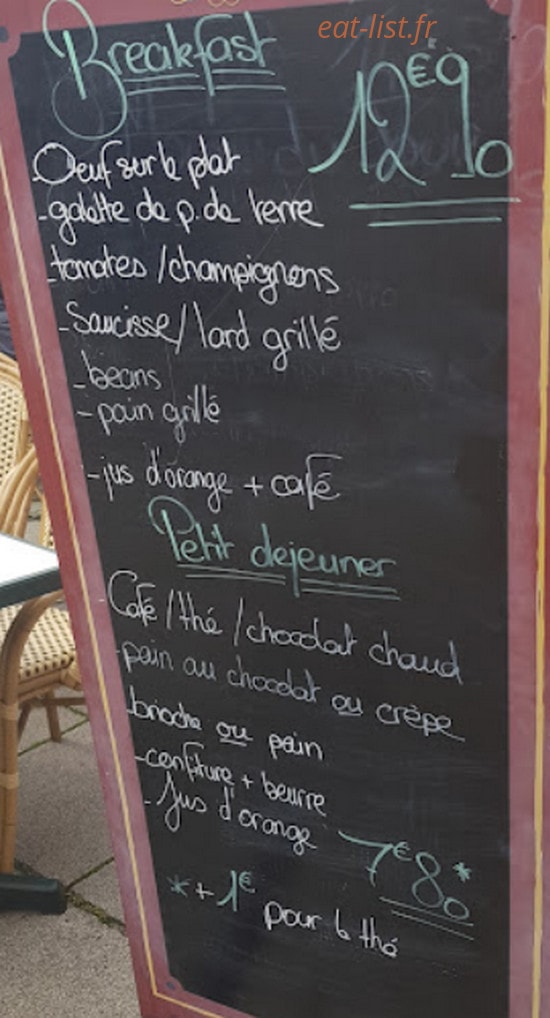 eat-list.fr
Breakfast
12€90
-Oeuf sur le plat
-galette de p. de terre
-tomates/champignons
-Saucisse/lard grillé
-beans
-pain grillé
-jus d'orange + café
Petit dejeuner
-Café/thé/chocolat chaud
-pain au chocolat ou crêpe
-brioche ou pain
-confiture + beurre
-Jus d'orange
7€80*
*+1€ pour le thé